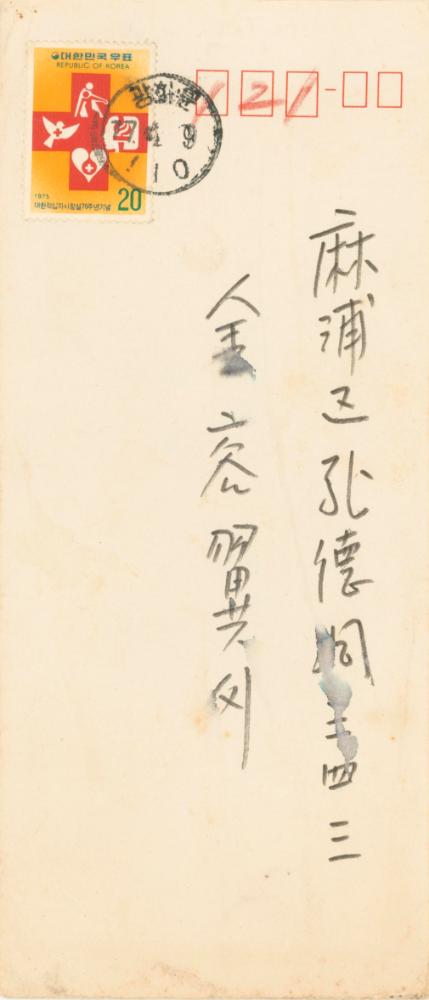 대한민국우표
REPUBLIC OF KOREA
1975
대한적십자사창설70주년기념
20
광화문
9
10
121-
麻浦区孔德洞三四三
金容翼